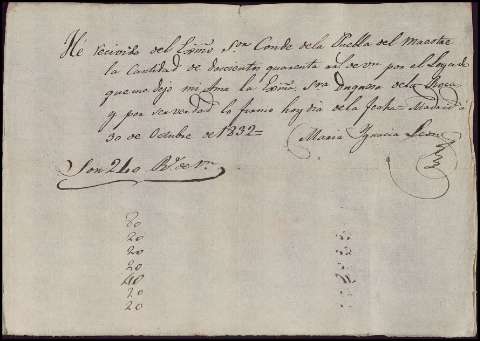 He recivido del Exmo Sor Conde de la Puebla del Maestre
la Cantidad de doscientos quarenta rs de vn por el Legado
que me dejo mi Ama la Exma Sra Duquesa de la Roca
y por ser verdad lo firmo hoy dia de la fecha Madrid a
30 de Octubre de 1832=
Maria Ygnacia Leon
Son 240 Rs de vn
20
20
20
40
20
20